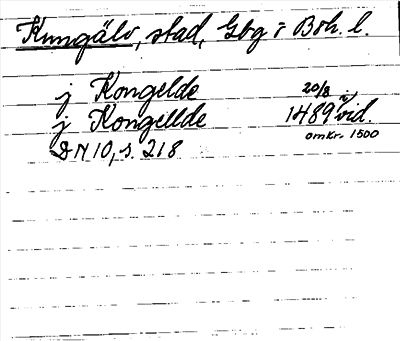 Kungälv, stad, Gbg o Boh. l.
j Kongelde
j Kongellde 20/8 1489 i vid.
omkr. 1500
DN 10, s. 218